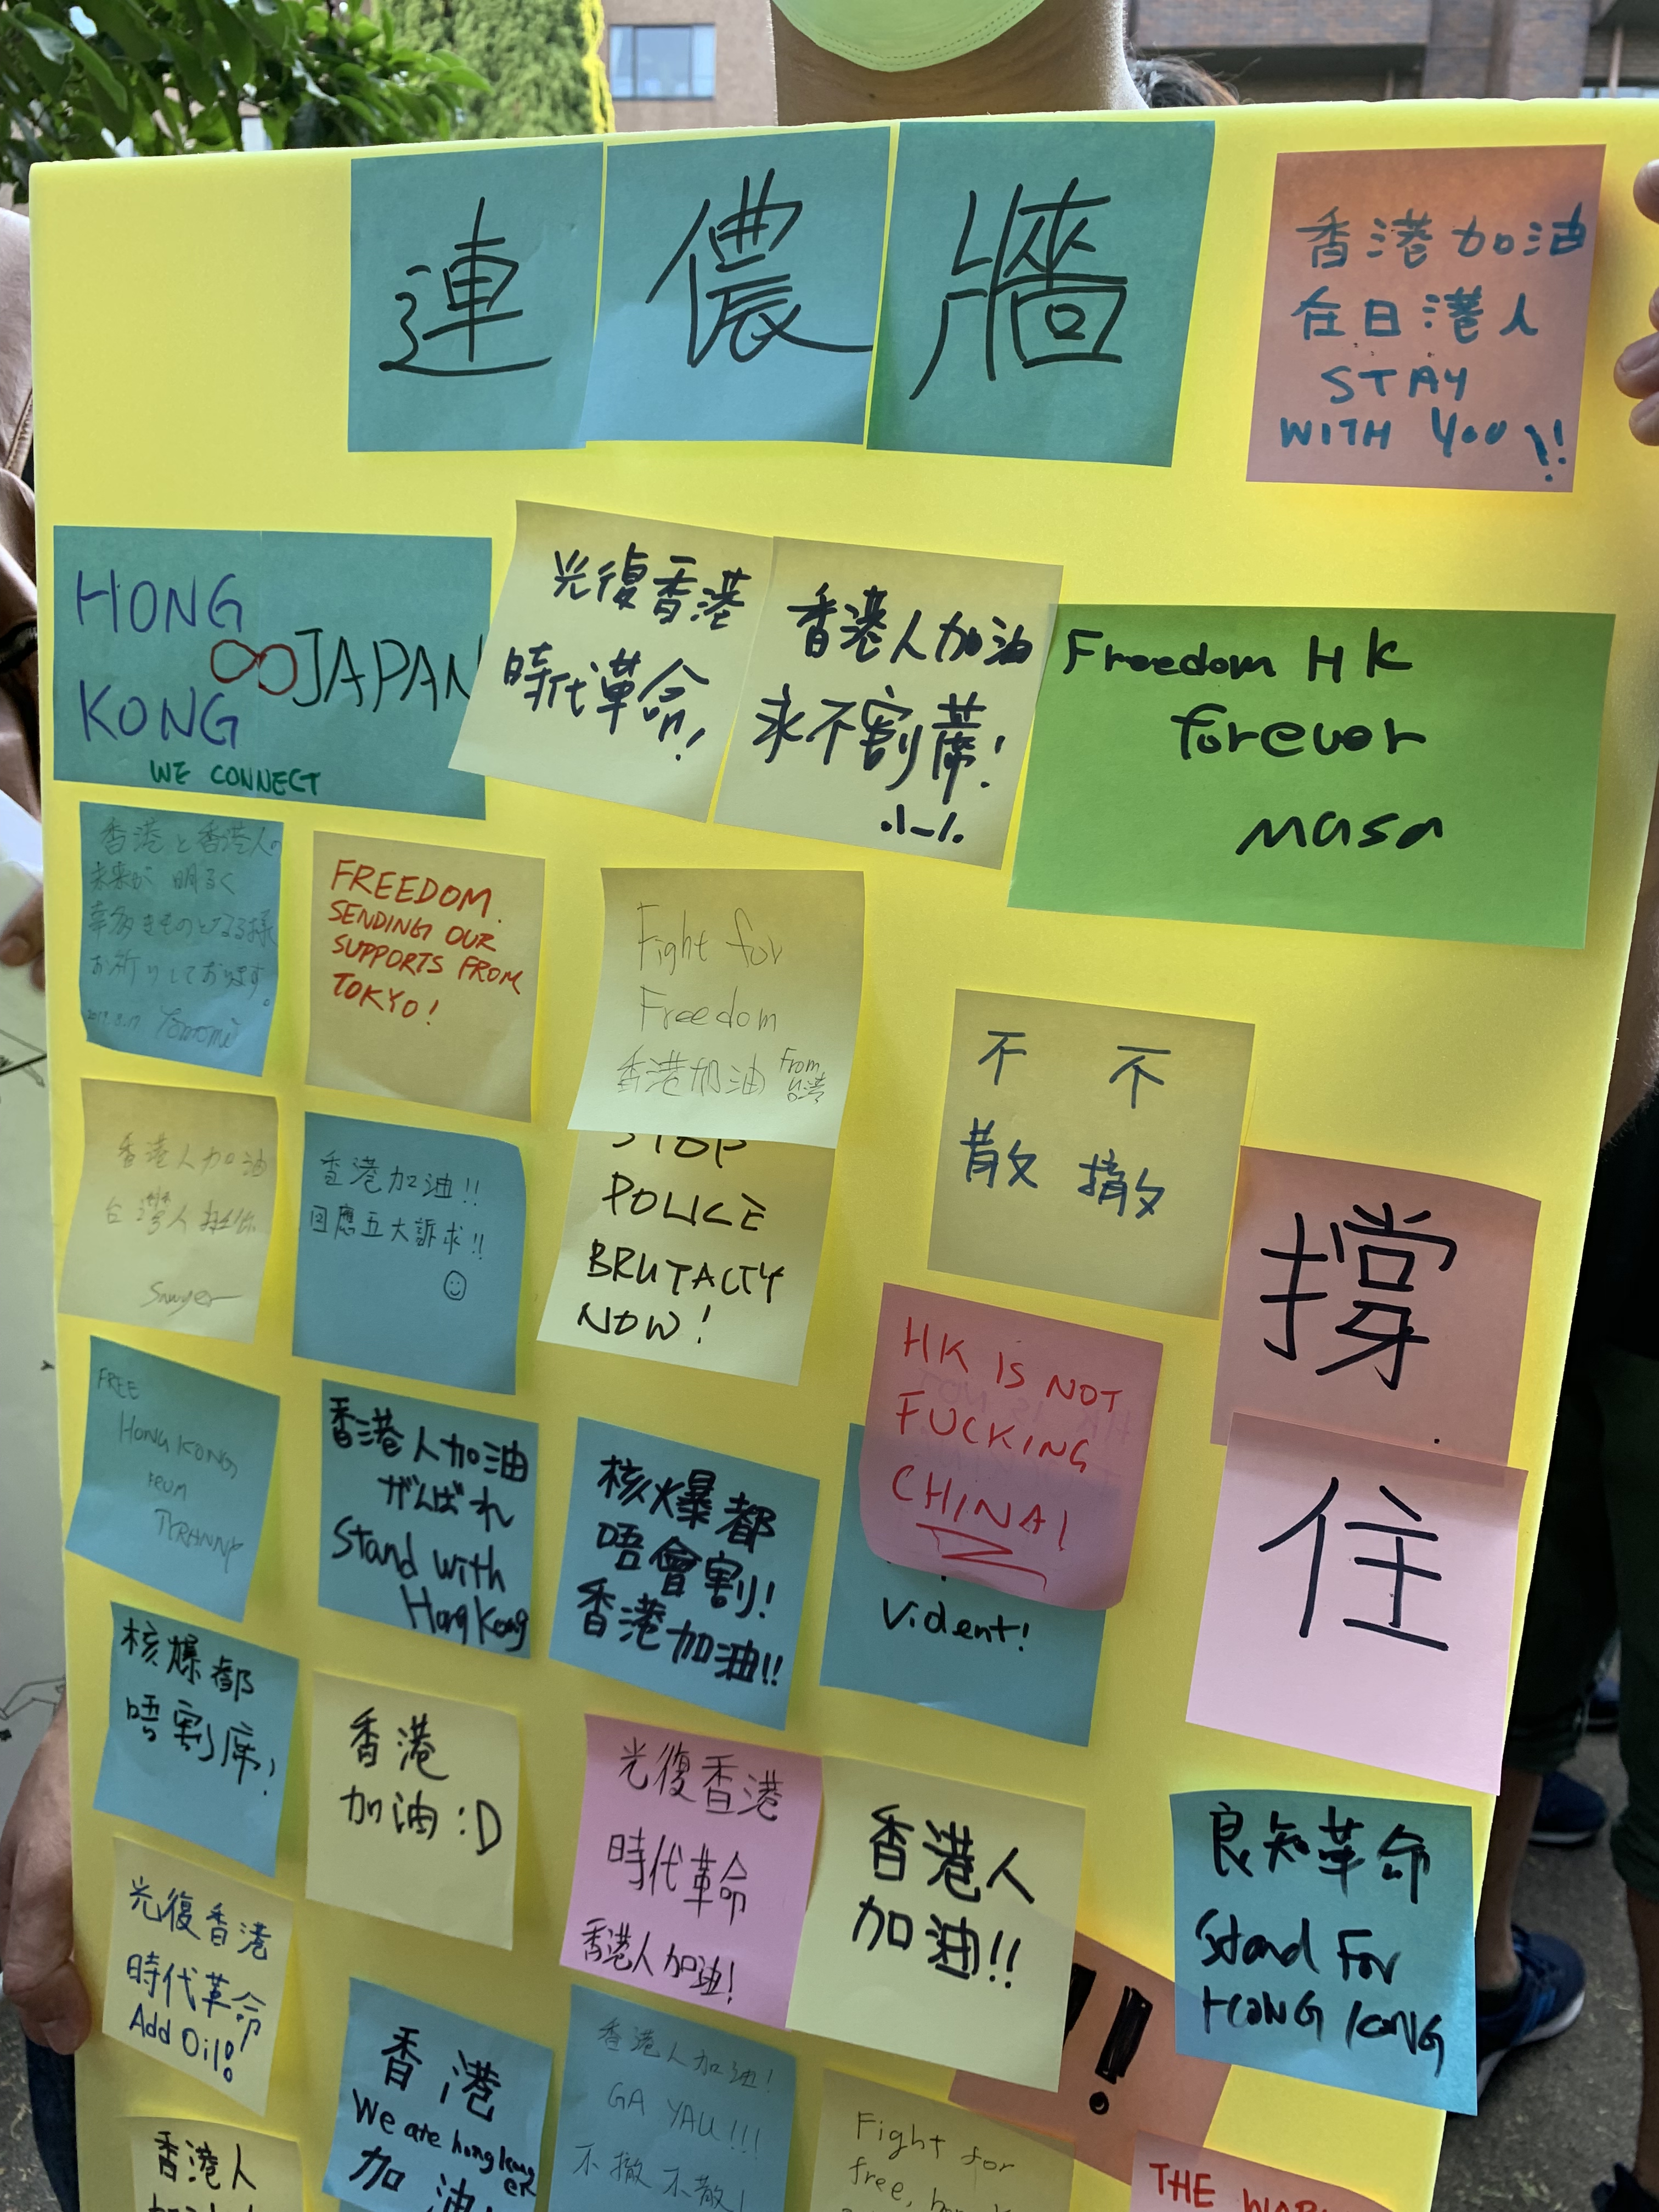 連儂牆
香港加油
在日港人
STAY
WITH YOU!!
HONG
KONG
∞JAPAN
WE CONNECT
光復香港
時代革命!
香港人加油
永不割蓆!
Freedom HK
forever
masa
香港と香港人の
未来が明るく
幸多きものとなる様
お祈りしております。
2019.8.17. Tomomi
FREEDOM.
SENDING OUR
SUPPORTS FROM
TOKYO!
Fight for
Freedom
香港加油 From
台湾
不 不
散 撤
香港人加油
台灣人挺你
Sawyer
香港加油!!
回應五大訴求!!
STOP
POLICE
BRUTALTY
NOW!
撐
住
HK IS NOT
FUCKING
CHINA!
FREE
HONG KONG
FROM
TYRANNY
香港人加油
がんばれ
Stand with
Hong Kong
核爆都
唔會割!
香港加油!!
Vident!
核爆都
唔割席!
香港
加油:D
光復香港
時代革命
香港人加油!
香港人
加油!!
良知革命
Stand For
HONG KONG
光復香港
時代革命
Add Oil!!
香港
We are hong kong
er
加油!
香港人加油!
GA YAU!!!
不撤不散!
!
Fight for
free,
香港人
THE